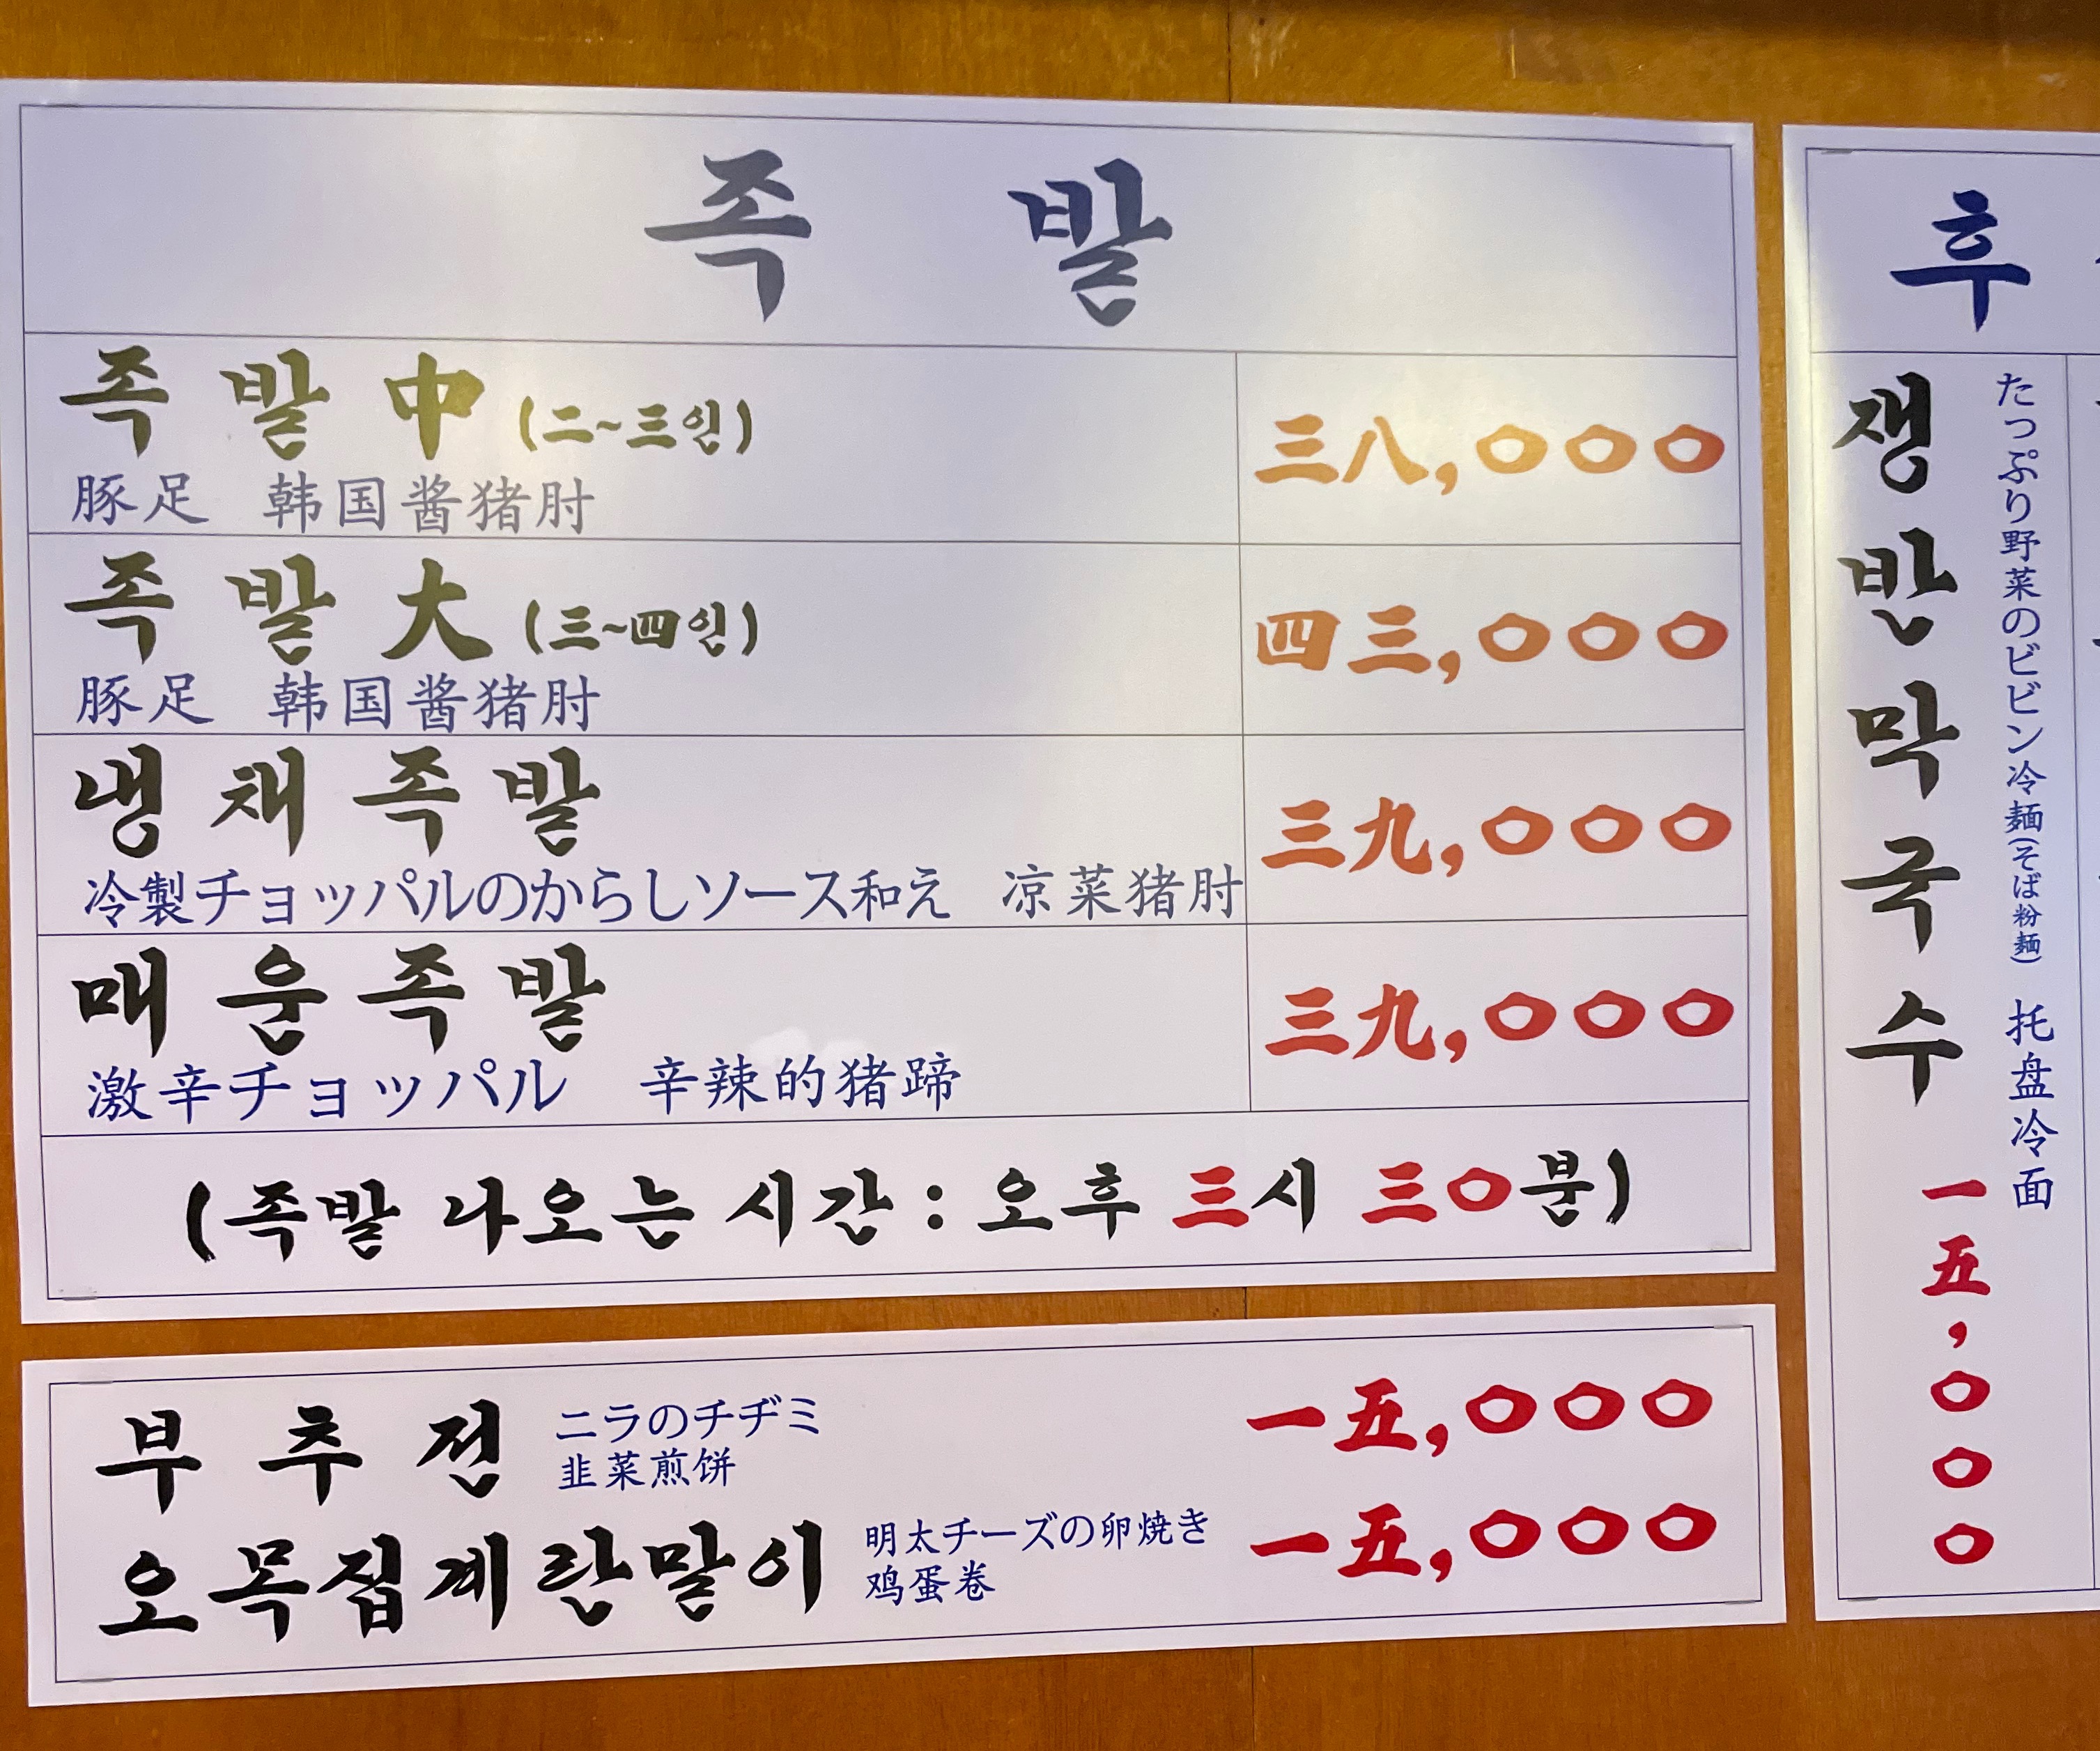 족 발
족 발 中 (二~三인)
三八,○○○
豚足 韩国酱猪肘
족 발 大 (三~四인)
四三,○○○
豚足 韩国酱猪肘
냉 채 족 발
三九,○○○
冷製チョッパルのからしソース和え 凉菜猪肘
매 운 족 발
三九,○○○
激辛チョッパル 辛辣的猪蹄
(족발 나오는 시간 : 오후 三시 三○분)
부 추 전
ニラのチヂミ
韭菜煎饼
一五,○○○
오목집계란말이
明太チーズの卵焼き
鸡蛋卷
一五,○○○
후
쟁반막국수
一五,○○○
たっぷり野菜のビビン冷麺(そば粉麺) 托盘冷面